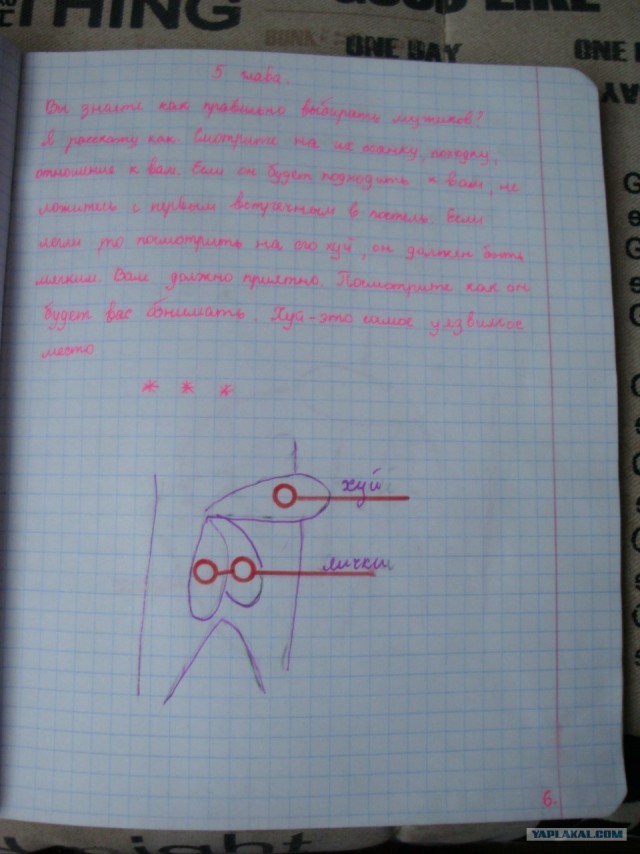 THING
GOOD LIKE
ONE DAY
ONE
5 глава.
Вы знаете как правильно выбирать
Я расскажу как. Смотрите на их осанку, походку,
отношение к вам. Если он будет подходить к вам, не
ложитесь с первым встречным в постель. Если
легли, то посмотрить на его хуй, он должен быть
мягким. Вам должно приятно. Посмотрите как он
будет вас обнимать. Хуй - это самое уязвимое
место
* * *
хуй
яички
6.
YAPLAKAL.COM